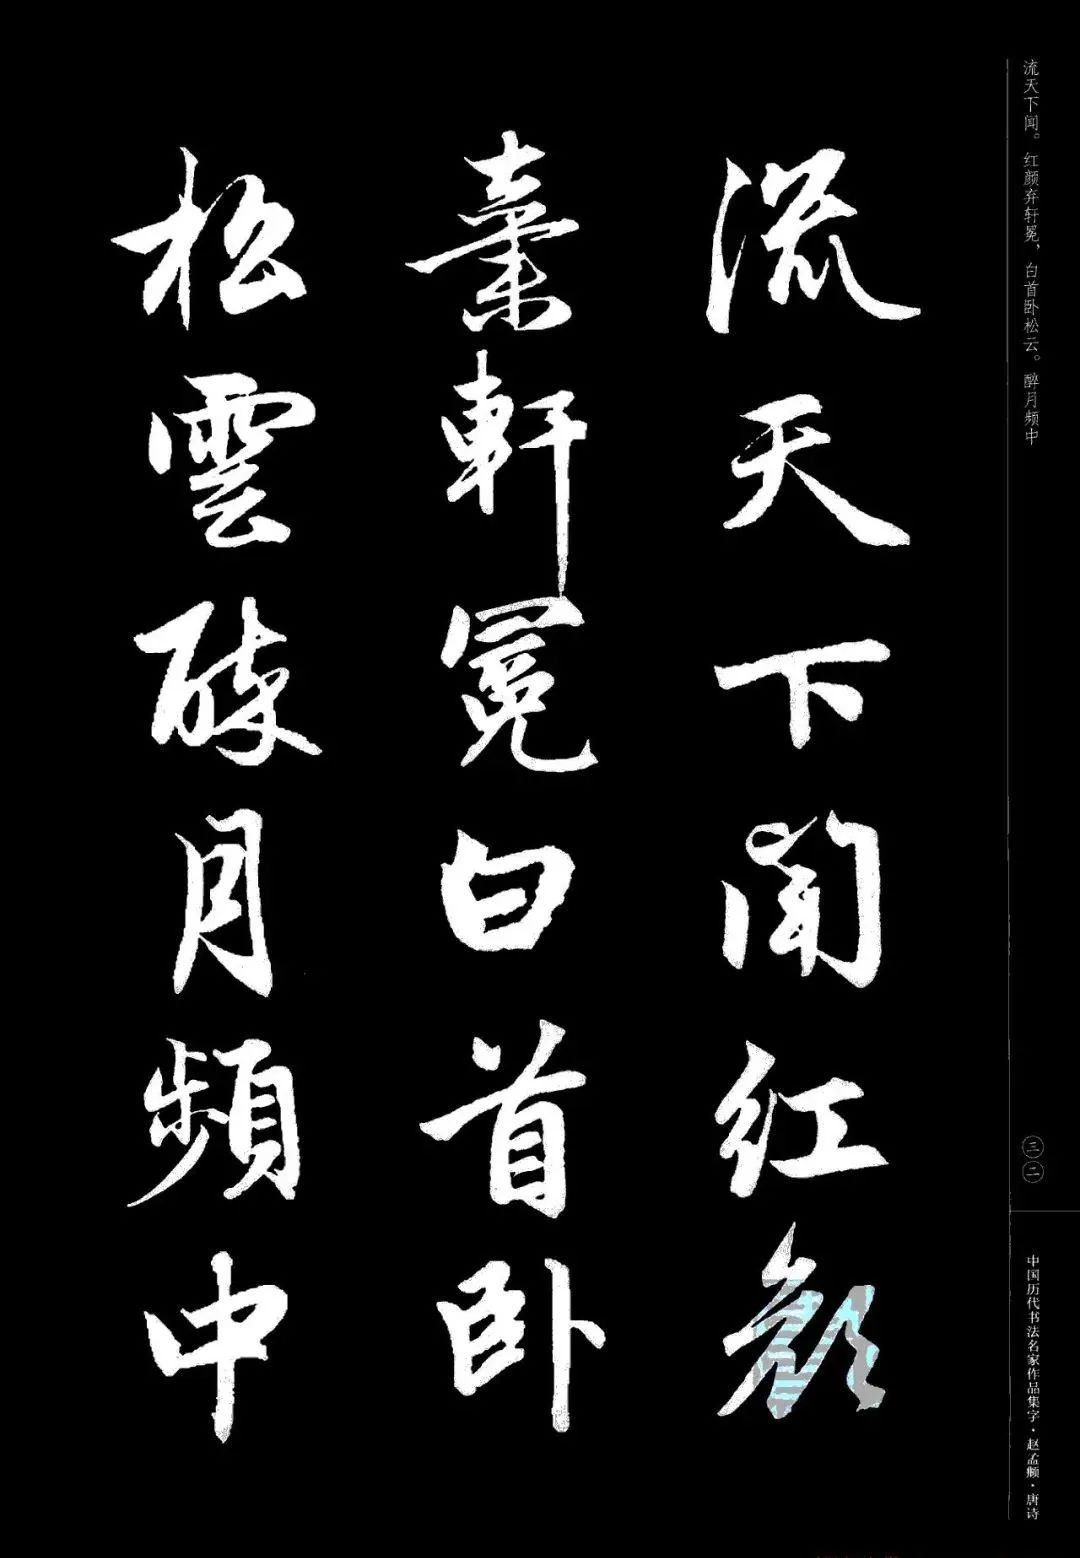 流天下闻。红颜弃轩冕，白首卧松云。醉月频中
流天下闻红颜
棄軒冕白首卧
松雲醉月頻中
三二
中国历代书法名家作品集字·赵孟頫·唐诗